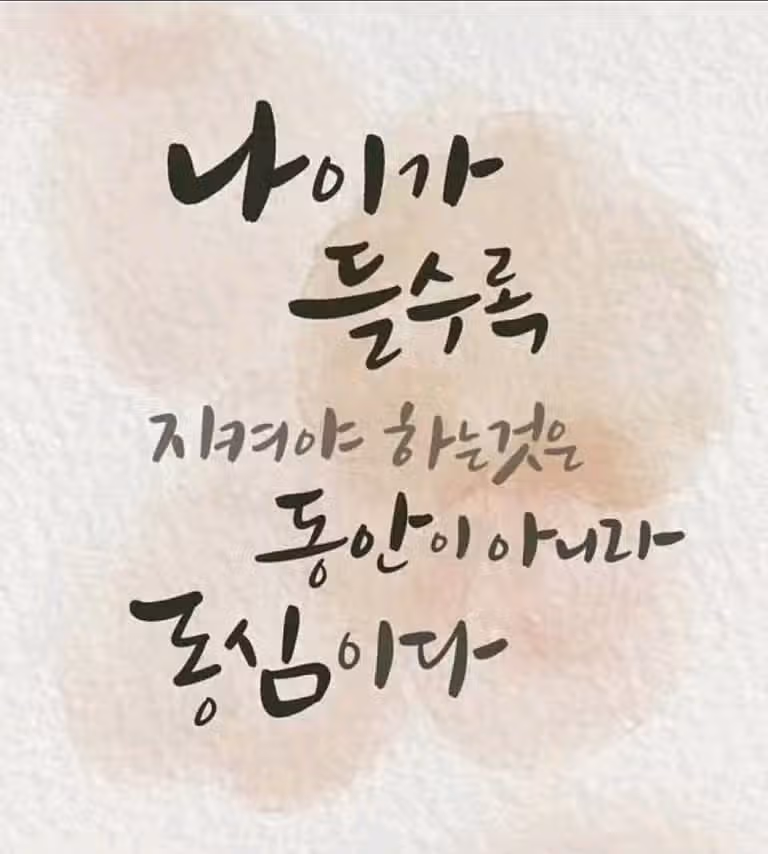 나이가
들수록
지켜야 하는것은
동안이 아니라
동심이다